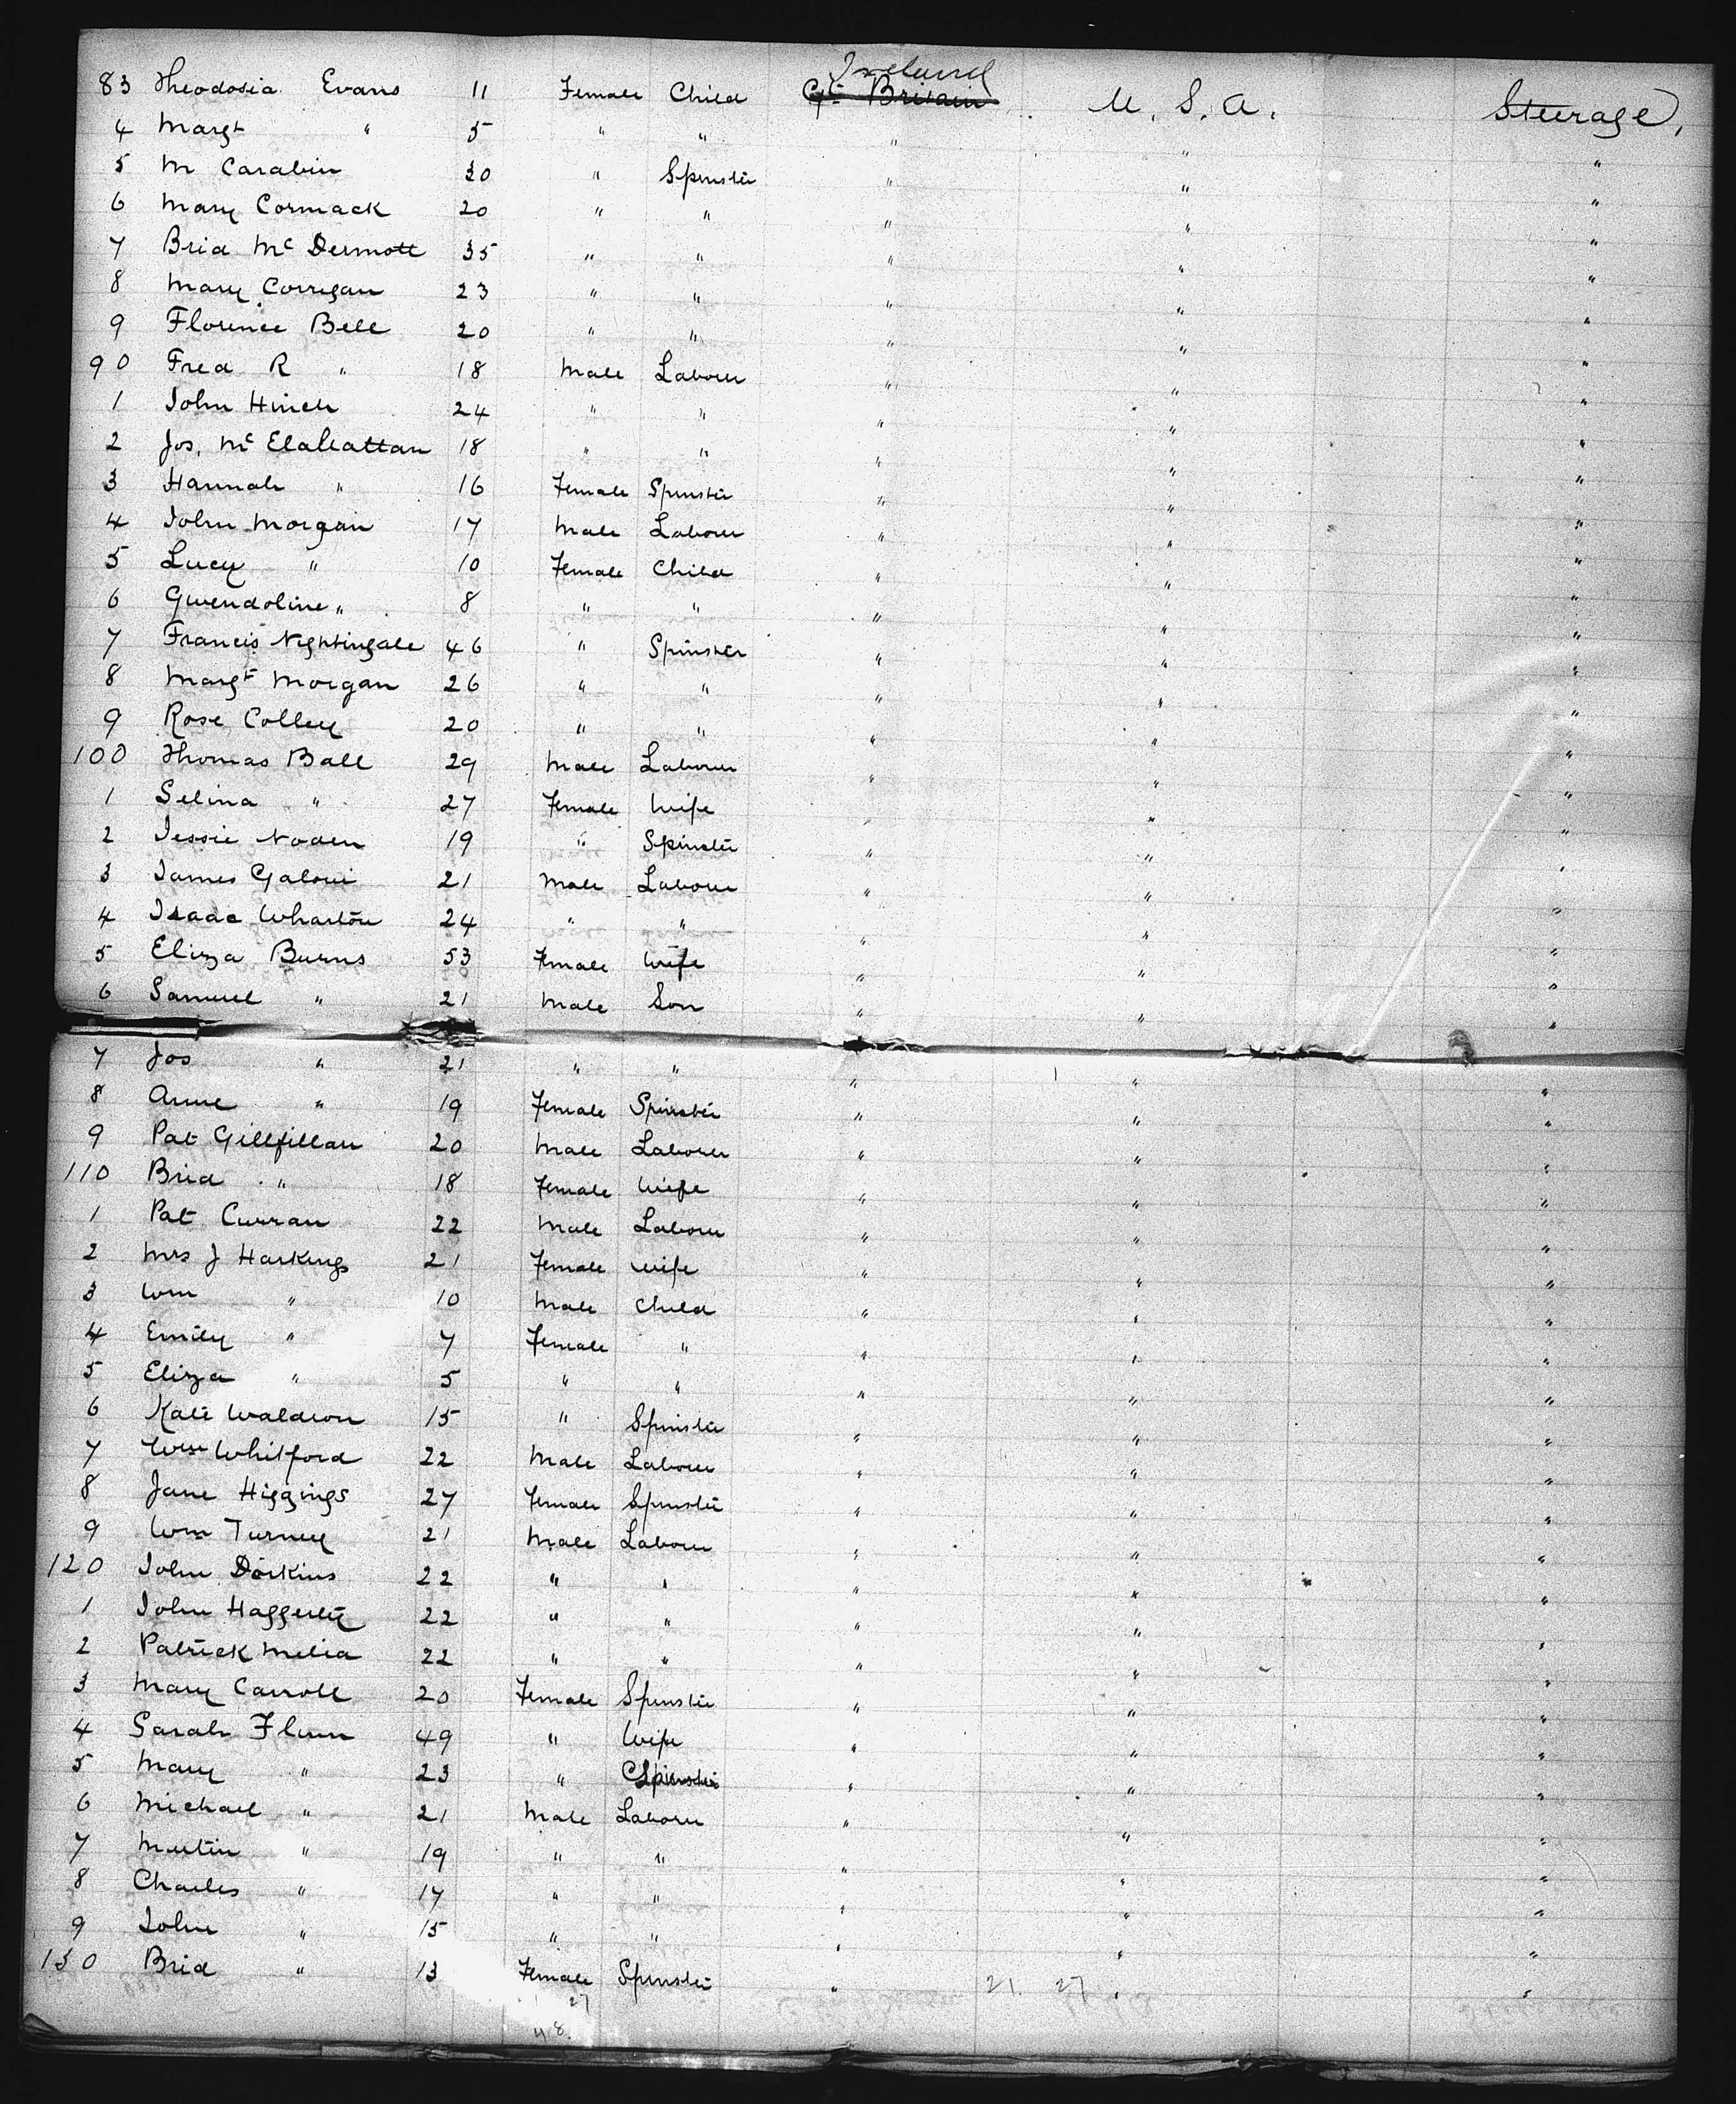 Ireland
83 Theodosia Evans 11 Female Child Gt Britain U. S. A. Steerage.
4 Margt " 5 " " " " "
5 M Carabin 30 " Spinster " " "
6 Mary Cormack 20 " " " " "
7 Brid McDermott 35 " " " " "
8 Mary Corrigan 23 " " " " "
9 Florence Bell 20 " " " " "
90 Fred R " 18 Male Laborer " " "
1 John Hinch 24 " " " " "
2 Jos. Mc Elahattan 18 " " " " "
3 Hannah " 16 Female Spinster " " "
4 John Morgan 17 Male Laborer " " "
5 Lucy " 10 Female Child " " "
6 Gwendoline " 8 " " " " "
7 Francis Nightingale 46 " Spinster " " "
8 Margt Morgan 26 " " " " "
9 Rose Colley 20 " " " " "
100 Thomas Ball 29 Male Laborer " " "
1 Selina " 27 Female Wife " " "
2 Jessie Noden 19 " Spinster " " "
3 James 21 Male Laborer " " "
4 Isaac Wharton 24 " " " " "
5 Eliza Burns 53 Female Wife " " "
6 Samuel " 21 Male Son " " "
7 Jos " 21 " " " " "
8 Anne " 19 Female Spinster " " "
9 Pat Gillfillan 20 Male Laborer " " "
110 Brid " 18 Female Wife " " "
1 Pat Curran 22 Male Laborer " " "
2 Mrs J Harkings 21 Female Wife " " "
3 Wm " 10 Male Child " " "
4 Emily " 7 Female " " " "
5 Eliza " 5 " " " " "
6 Kate Waldron 15 " Spinster " " "
7 Wm Whitford 22 Male Laborer " " "
8 Jane Higgings 27 Female Spinster " " "
9 Wm Turney 21 Male Laborer " " "
120 John Dorkins 22 " " " " "
1 John Haggerty 22 " " " " "
2 Patrick Melia 22 " " " " "
3 Mary Carroll 20 Female Spinster " " "
4 Sarah Flinn 49 " Wife " " "
5 Mary " 23 " Spinster " " "
6 Michael " 21 Male Laborer " " "
7 Martin " 19 " " " " "
8 Charles " 17 " " " " "
9 John " 15 " " " " "
130 Brid " 13 Female Spinster " 21. 27 " "
27
48